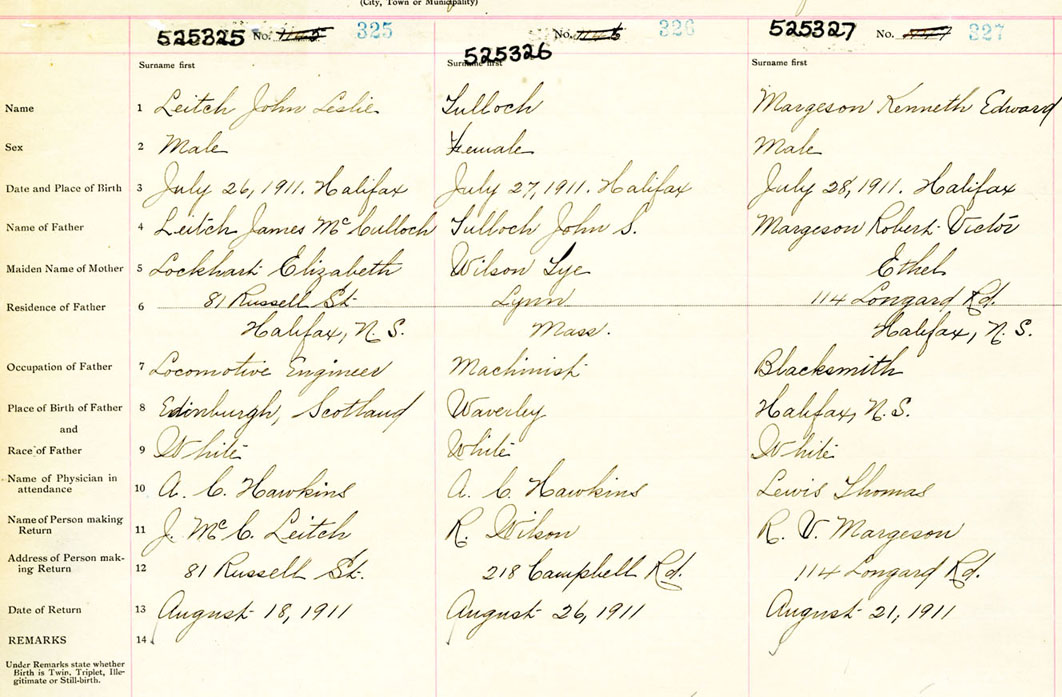 (City, Town or Municipality)
525325 No. 325 525326 No. 326 525327 No. 327
Surname first Surname first Surname first
Name 1 Leitch John Leslie Tulloch Margeson Kenneth Edward
Sex 2 Male Female Male
Date and Place of Birth 3 July 26, 1911. Halifax July 27, 1911. Halifax July 28, 1911. Halifax
Name of Father 4 Leitch James McCulloch Tulloch John S. Margeson Robert Victor
Maiden Name of Mother 5 Lockhart Elizabeth Wilson Lye Ethel
Residence of Father 6 81 Russell St. Lynn 114 Longard Rd.
Halifax, N. S. Mass. Halifax, N. S.
Occupation of Father 7 Locomotive Engineer Machinist Blacksmith
Place of Birth of Father 8 Edinburgh, Scotland Waverley Halifax, N.S.
and
Race of Father 9 White White White
Name of Physician in
attendance 10 A. C. Hawkins A. C. Hawkins Lewis Thomas
Name of Person making
Return 11 J. McC. Leitch R. Wilson R. V. Margeson
Address of Person mak-
ing Return 12 81 Russell St. 218 Campbell Rd. 114 Longard Rd.
Date of Return 13 August 18, 1911 August 26, 1911 August 21, 1911
REMARKS 14
Under Remarks state whether
Birth is Twin, Triplet, Ille-
gitimate or Still-birth.